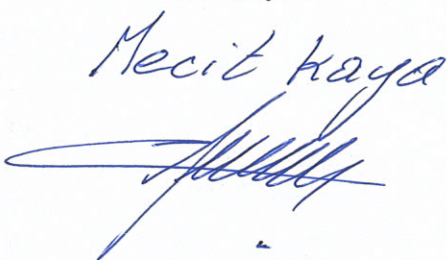 Mecit Kaya